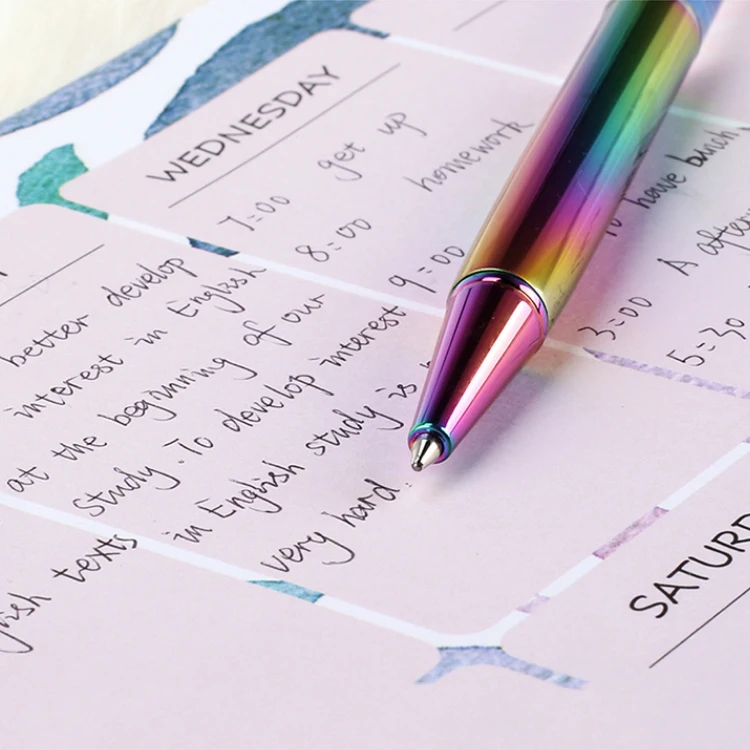 WEDNESDAY
7:00 get up
8:00 homework
9:00
to have lunch
3:00 A
5:30
better develop
interest in English
at the beginning of our
study. To develop interest
in English study is
very hard.
texts
SATURD